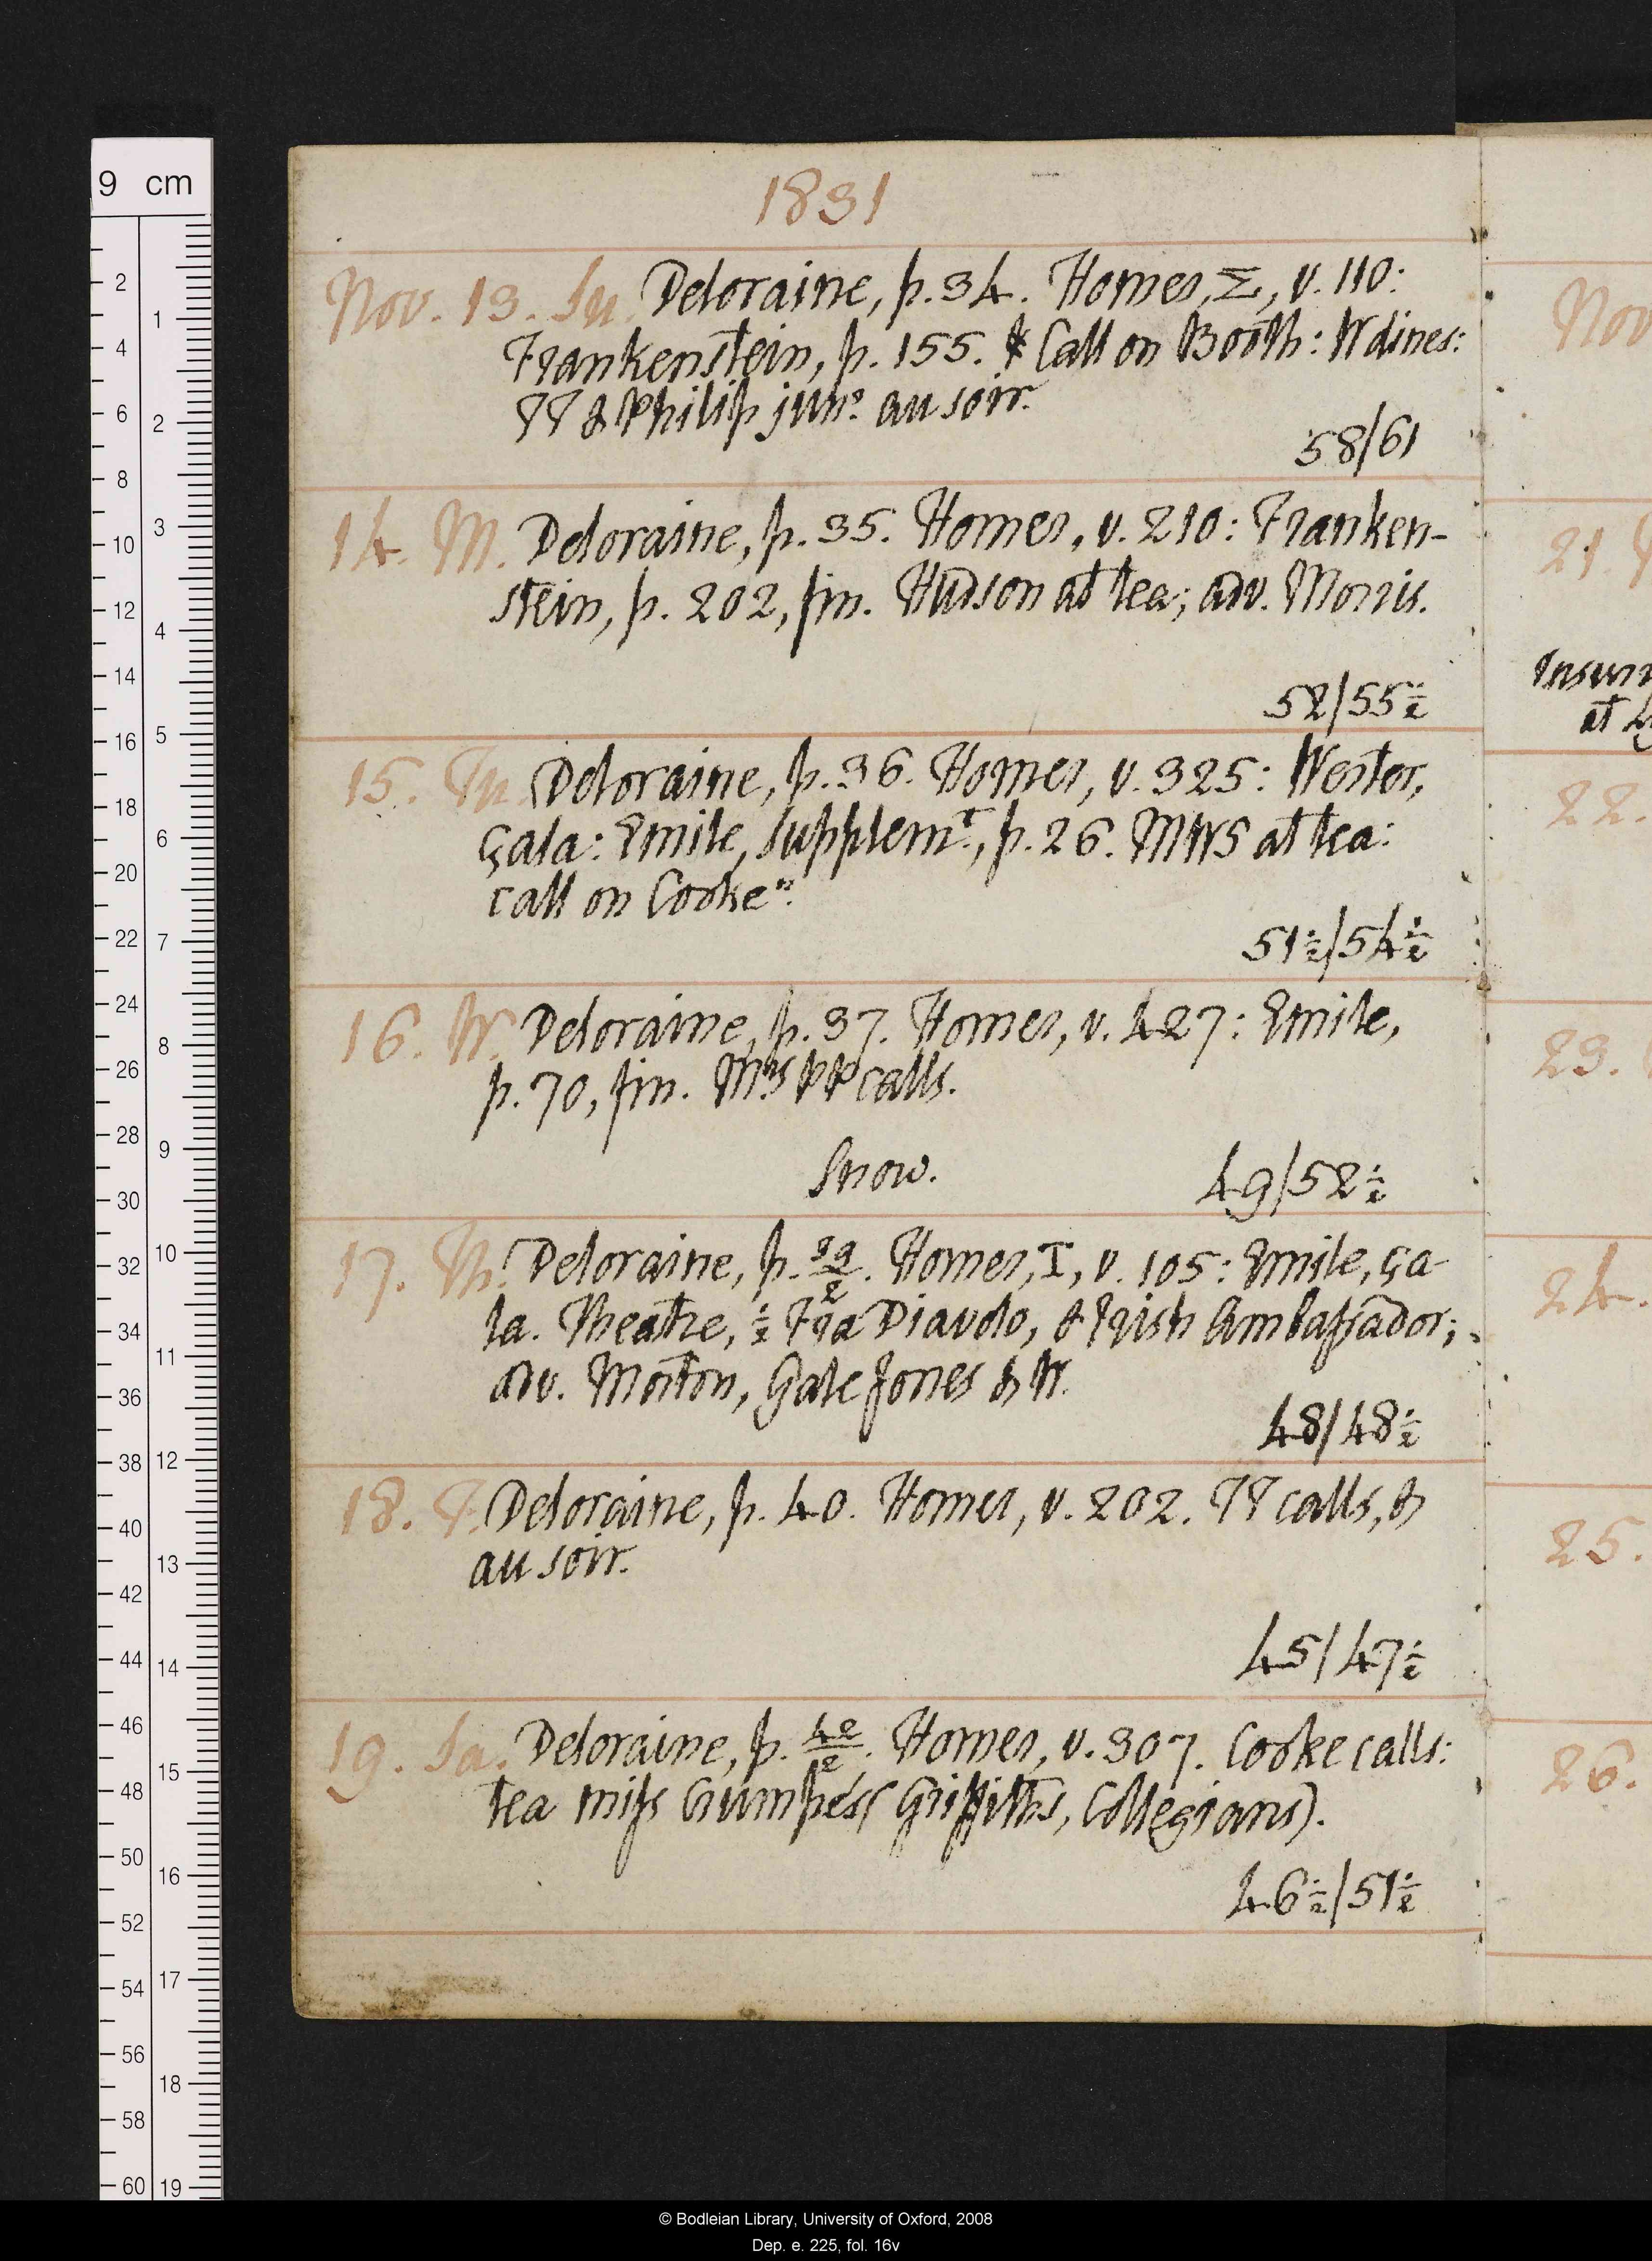 1831
Nov. 13. Su. Deloraine, p. 34. Homer, Σ, v. 110:
Frankenstein, p. 155. Call on Booth: W dines:
TT & Philip junr. au soir.
58/61
14. M. Deloraine, p. 35. Homer, v. 210: Franken-
stein, p. 202, fin. Hudson at tea; adv. Morris.
52/55½
15. Tu. Deloraine, p. 36. Homer, v. 325:
çala: Emile, Supplemt., p. 26. MWS at tea:
call on Cooke n.
51½/54½
16. W. Deloraine, p. 37. Homer, v. 427: Emile,
p. 70, fin. calls.
Snow.
49/52½
17. Th. Deloraine, p. 39/2. Homer, T, v. 105: Emile, ça-
la. Theatre, ½ Fra Diavolo, & Irish Ambassador;
adv. Morton, Gale Jones & W.
48/48½
18. F. Deloraine, p. 40. Homer, v. 202. TT calls, &
au soir.
45/47½
19. Sa. Deloraine, p. 42/2. Homer, v. 307. Cooke calls:
tea miss (Griffiths, Collegians).
46½/51½
Nov
21
Insurr
at
22.
23.
24.
25.
26.
9 cm
2
4
6
8
10
12
14
16
18
20
22
24
26
28
30
32
34
36
38
40
42
44
46
48
50
52
54
56
58
60
1
2
3
4
5
6
7
8
9
10
11
12
13
14
15
16
17
18
19
© Bodleian Library, University of Oxford, 2008
Dep. e. 225, fol. 16v